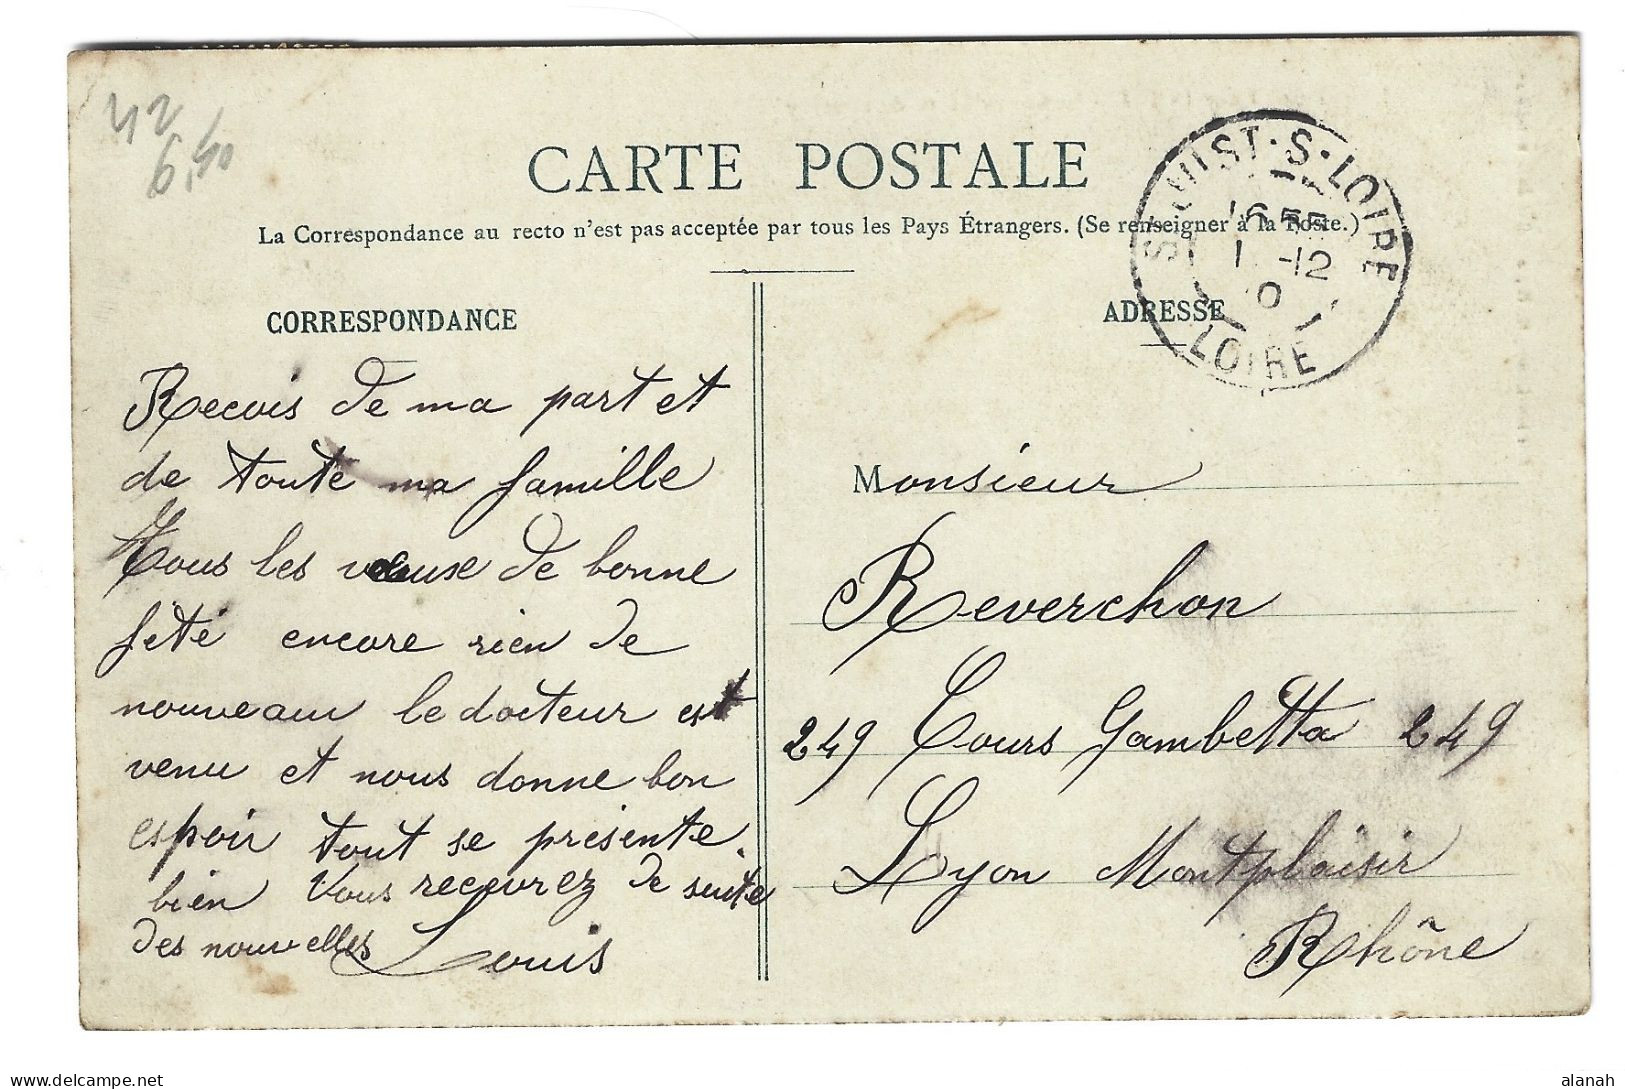 42
6,40
CARTE POSTALE
La Correspondance au recto n'est pas acceptée par tous les Pays Étrangers. (Se renseigner à la Poste.)
CORRESPONDANCE
Recois de ma part et
de toute ma famille
Tous les veuse de bonne
fété encore rien de
nouveaux le docteur est
venu et nous donne bon
espoir tout se présente.
bien Vous recevrez de suite
des nouvelles Louis
ADRESSE
ST JUST-S-LOIRE
1 -12
LOIRE
Monsieur
Reverchon
249 Cours Gambetta 249
Lyon Montplaisir
Rhône
alanah